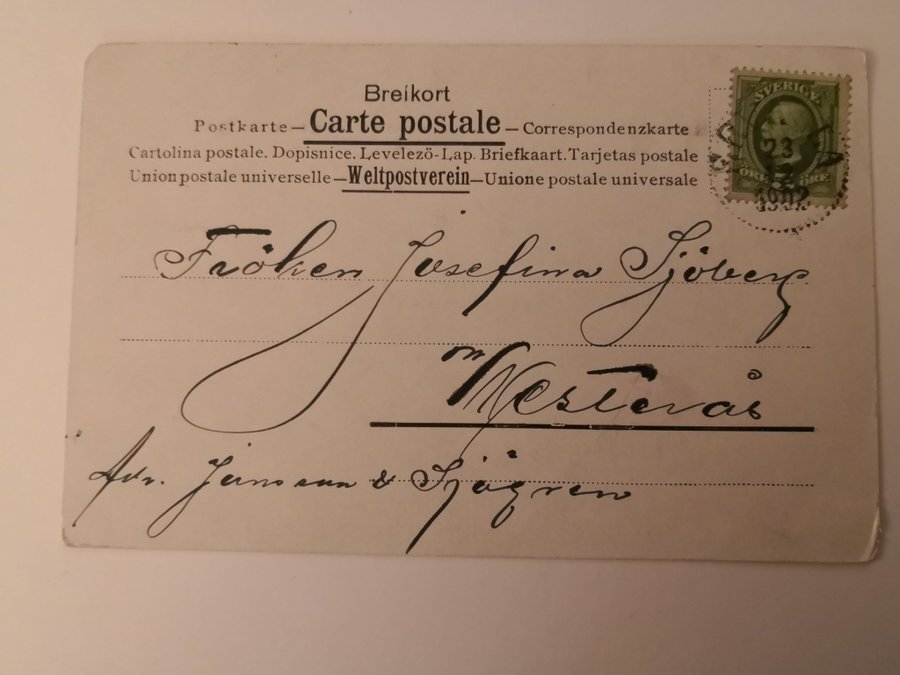 Breíkort
Postkarte – Carte postale – Correspondenzkarte
Cartolina postale. Dopisnice. Levelező-Lap. Briefkaart. Tarjetas postale
Union postale universelle – Weltpostverein – Unione postale universale
SVERIGE
23
1902
Fröken Josefina Sjöberg
Westerås
Adr. Jansson & Sjögren